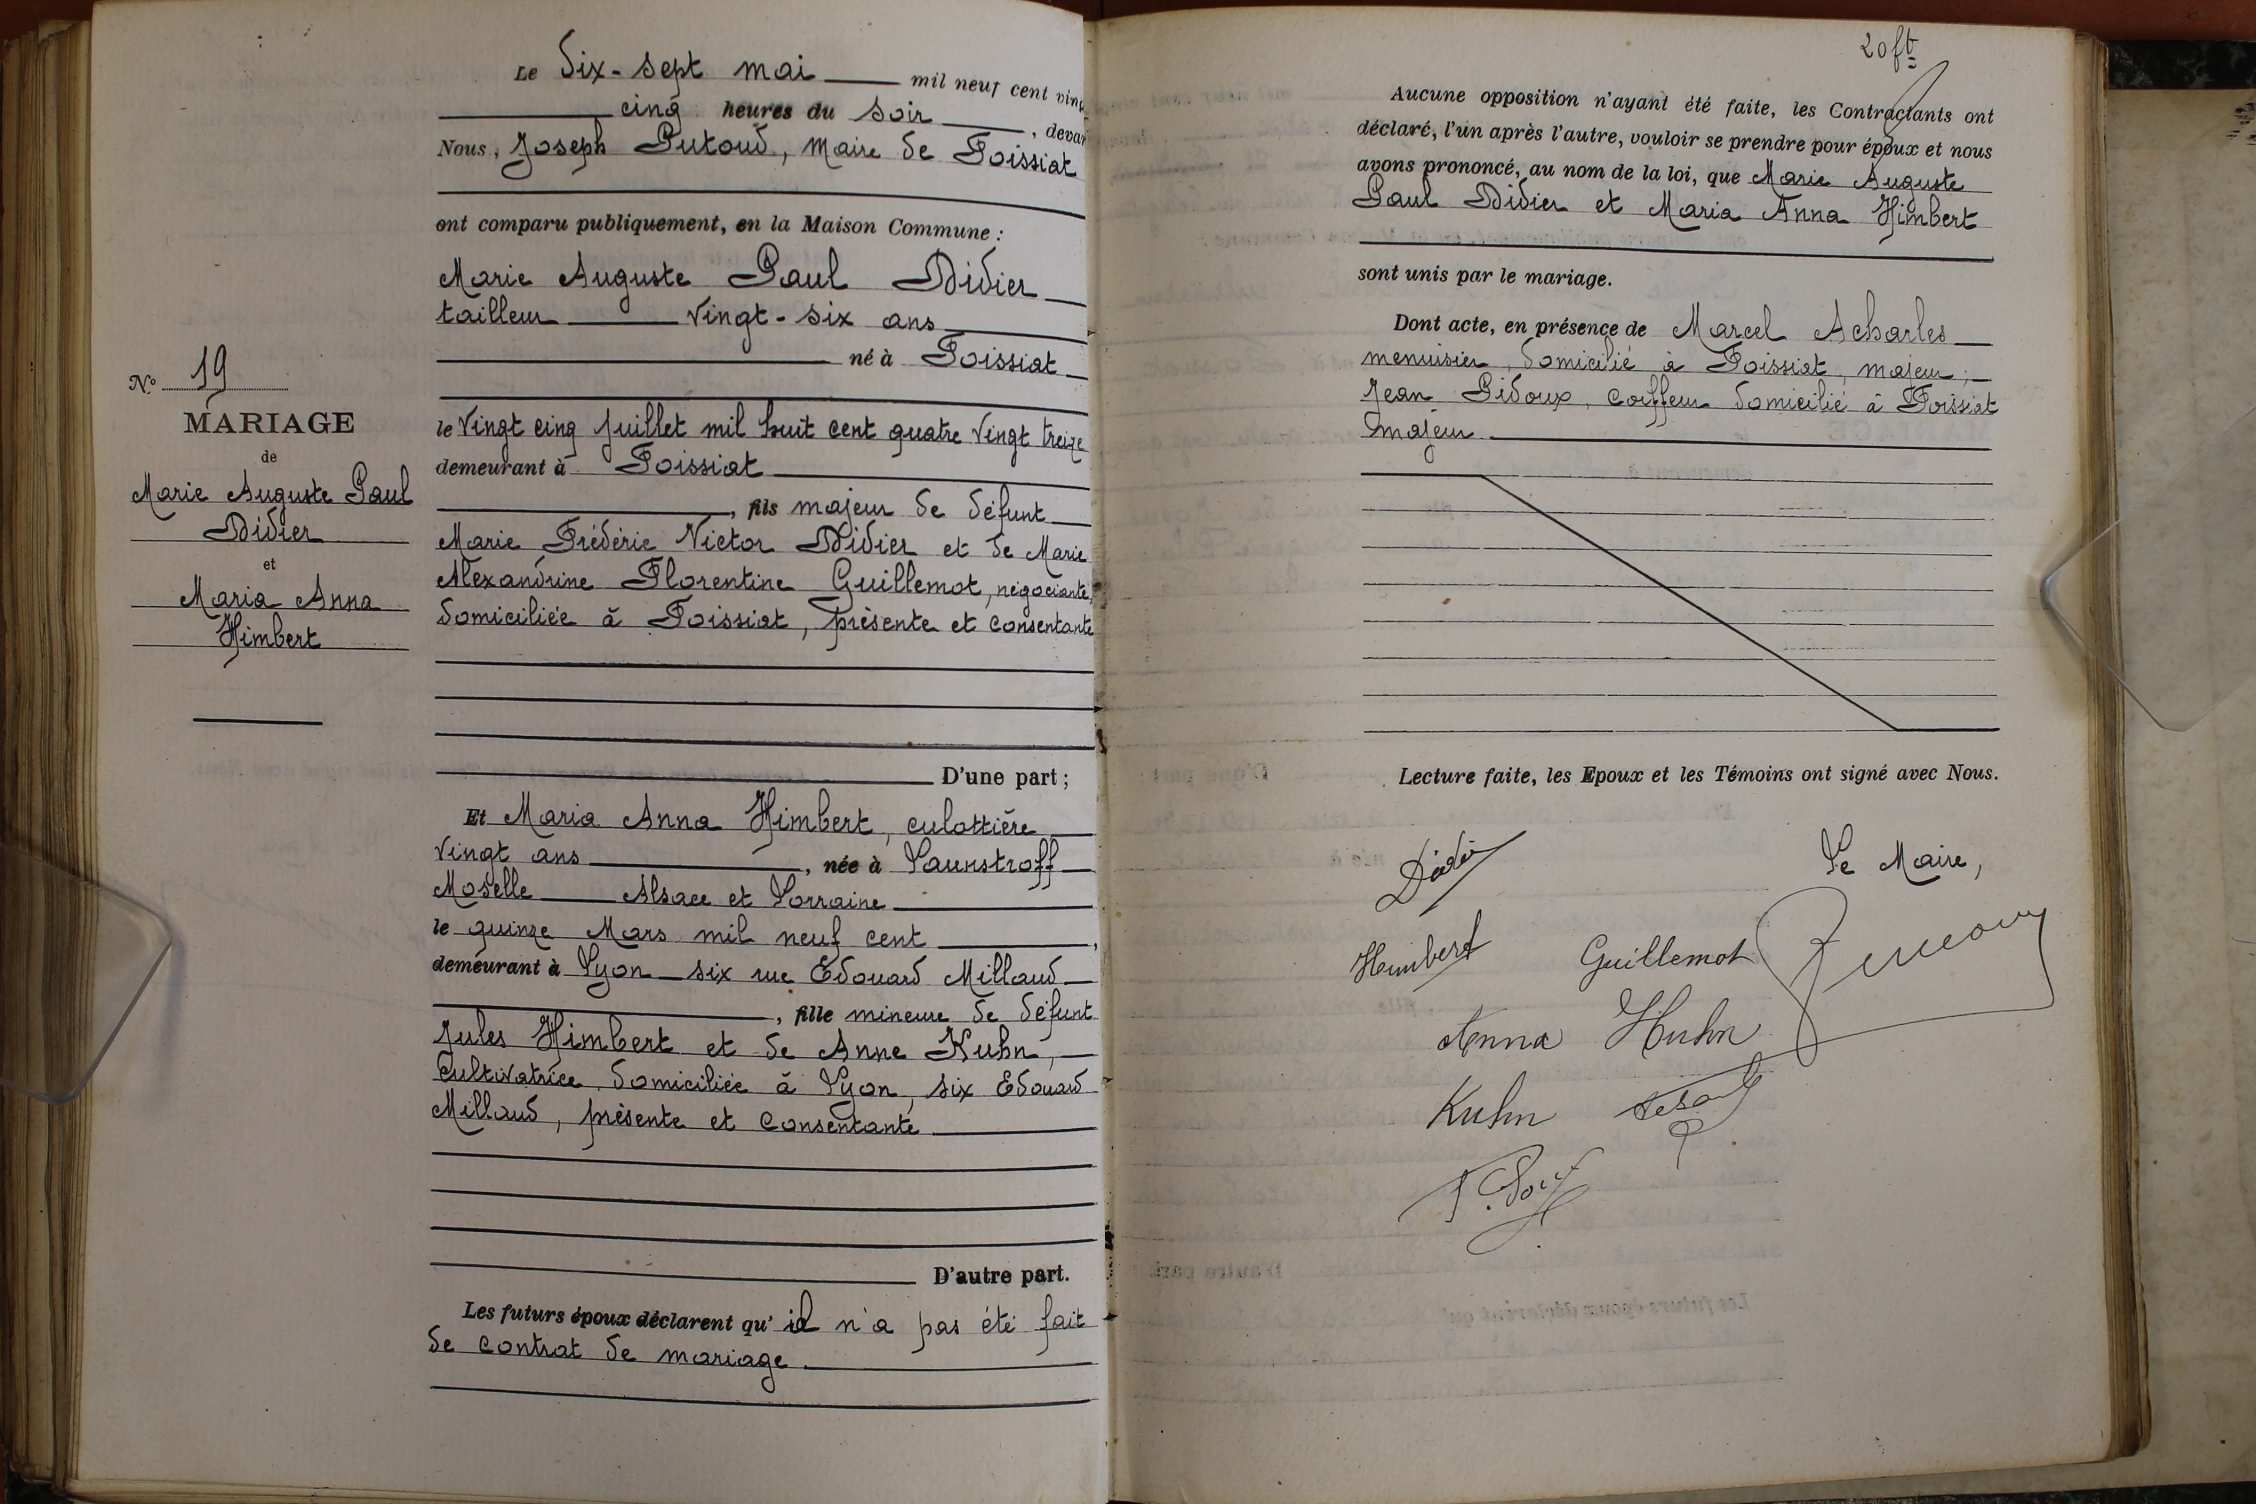 Le dix-sept mai mil neuf cent vingt
cinq heures du soir, devant
Nous, Joseph Putoud, Maire de Foissiat
ont comparu publiquement, en la Maison Commune :
Marie Auguste Paul Didier
tailleur vingt-six ans
né à Foissiat
N° 19
MARIAGE
de
Marie Auguste Paul
Didier
et
Maria Anna
Himbert
le vingt cinq juillet mil huit cent quatre vingt treize
demeurant à Foissiat
, fils majeur de défunt
Marie Frédéric Victor Didier et de Marie
Alexandrine Florentine Guillemot, négociante,
domiciliée à Foissiat, présente et consentante
D'une part ;
Et Maria Anna Himbert, culottière
vingt ans, née à Launstroff
Moselle Alsace et Lorraine
le quinze Mars mil neuf cent,
demeurant à Lyon six rue Edouard Millaud
, fille mineure de défunt
Jules Himbert et de Anne Kuhn,
Cultivatrice domiciliée à Lyon, six Edouard
Millaud, présente et consentante
D'autre part.
Les futurs époux déclarent qu'il n'a pas été fait
de contrat de mariage
20 ft
Aucune opposition n'ayant été faite, les Contractants ont
déclaré, l'un après l'autre, vouloir se prendre pour époux et nous
avons prononcé, au nom de la loi, que Marie Auguste
Paul Didier et Maria Anna Himbert
sont unis par le mariage.
Dont acte, en présence de Marcel Acharles
menuisier, domicilié à Foissiat, majeur ;
Jean Pidoux, coiffeur domicilié à Foissiat
majeur
Lecture faite, les Epoux et les Témoins ont signé avec Nous.
Didier
Le Maire,
Himbert Guillemot
Anna Huhn
Kuhn